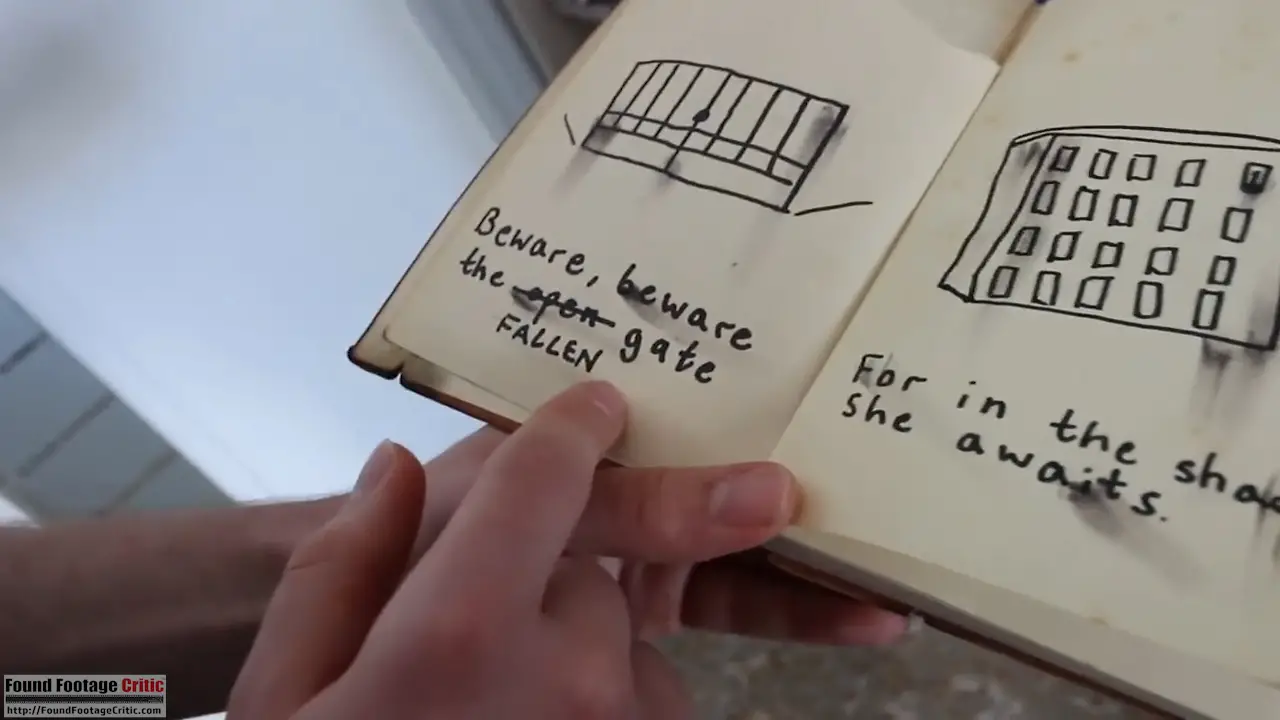 Beware, beware
the open gate
FALLEN
For in the
she awaits.
Found Footage Critic
http://FoundFootageCritic.com